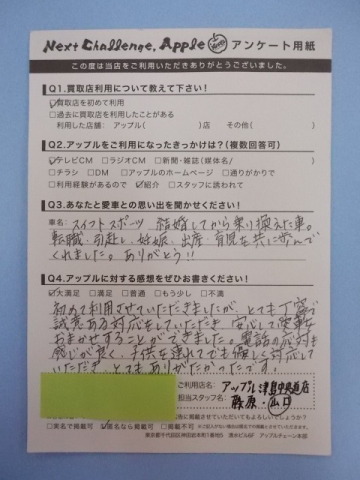 Next Challenge. Apple アンケート用紙
この度は当店をご利用いただきありがとうございました。
Q1.買取店利用について教えて下さい!
☑買取店を初めて利用
□過去に買取店を利用したことがある
利用した店舗: アップル( )店 その他( )
Q2.アップルをご利用になったきっかけは?(複数回答可)
☑テレビCM □ラジオCM □新聞・雑誌(媒体名/ )
□チラシ □DM □アップルのホームページ □通りがかりで
□利用経験があるので ☑紹介 □スタッフに誘われて
Q3.あなたと愛車との思い出を聞かせてください!
車名: スイフトスポーツ 結婚してから乗り換えた車。
転職、引越し、妊娠、出産、育児を共に歩んで
くれました。ありがとう!!
Q4.アップルに対する感想をぜひお書きください!
☑大満足 □満足 □普通 □もう少し □不満
初めて利用させていただきましたが、とても丁寧で
誠意ある対応をしていただき、安心して愛車を
おまかせすることができました。電話の応対も
感じが良く、子供を連れてでも優しく対応して
いただき、とてもありがたかったです。
ご利用店名: アップル津島中央道店
担当スタッフ名: 藤原・山口
に掲載させていただいてもよろしいでしょうか?
□実名で掲載可 ☑匿名なら掲載可 □掲載不可
東京都千代田区神田岩本町1番地5 清水ビル8F アップルチェーン本部